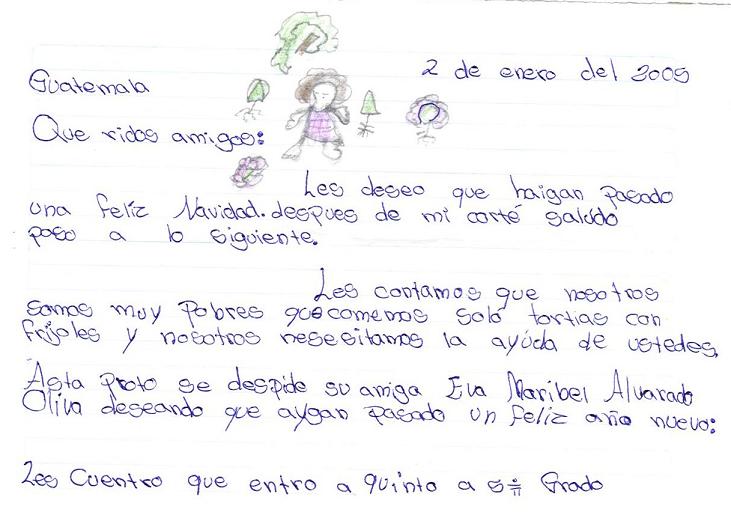 Guatemala
2 de enero del 2005
Que ridos amigos:
Les deseo que haigan pasado
una feliz Navidad. despues de mi corté saludo
paso a lo siguiente.
Les contamos que nosotros
somos muy pobres que comemos solo tortias con
frijoles y nosotros nesesitamos la ayúda de ustedes,
Asta Proto se despide su amiga Eva Maribel Alvarado
Oliva deseando que aygan pasado un feliz año nuevo:
Les Cuentro que entro a quinto a 5 Grado